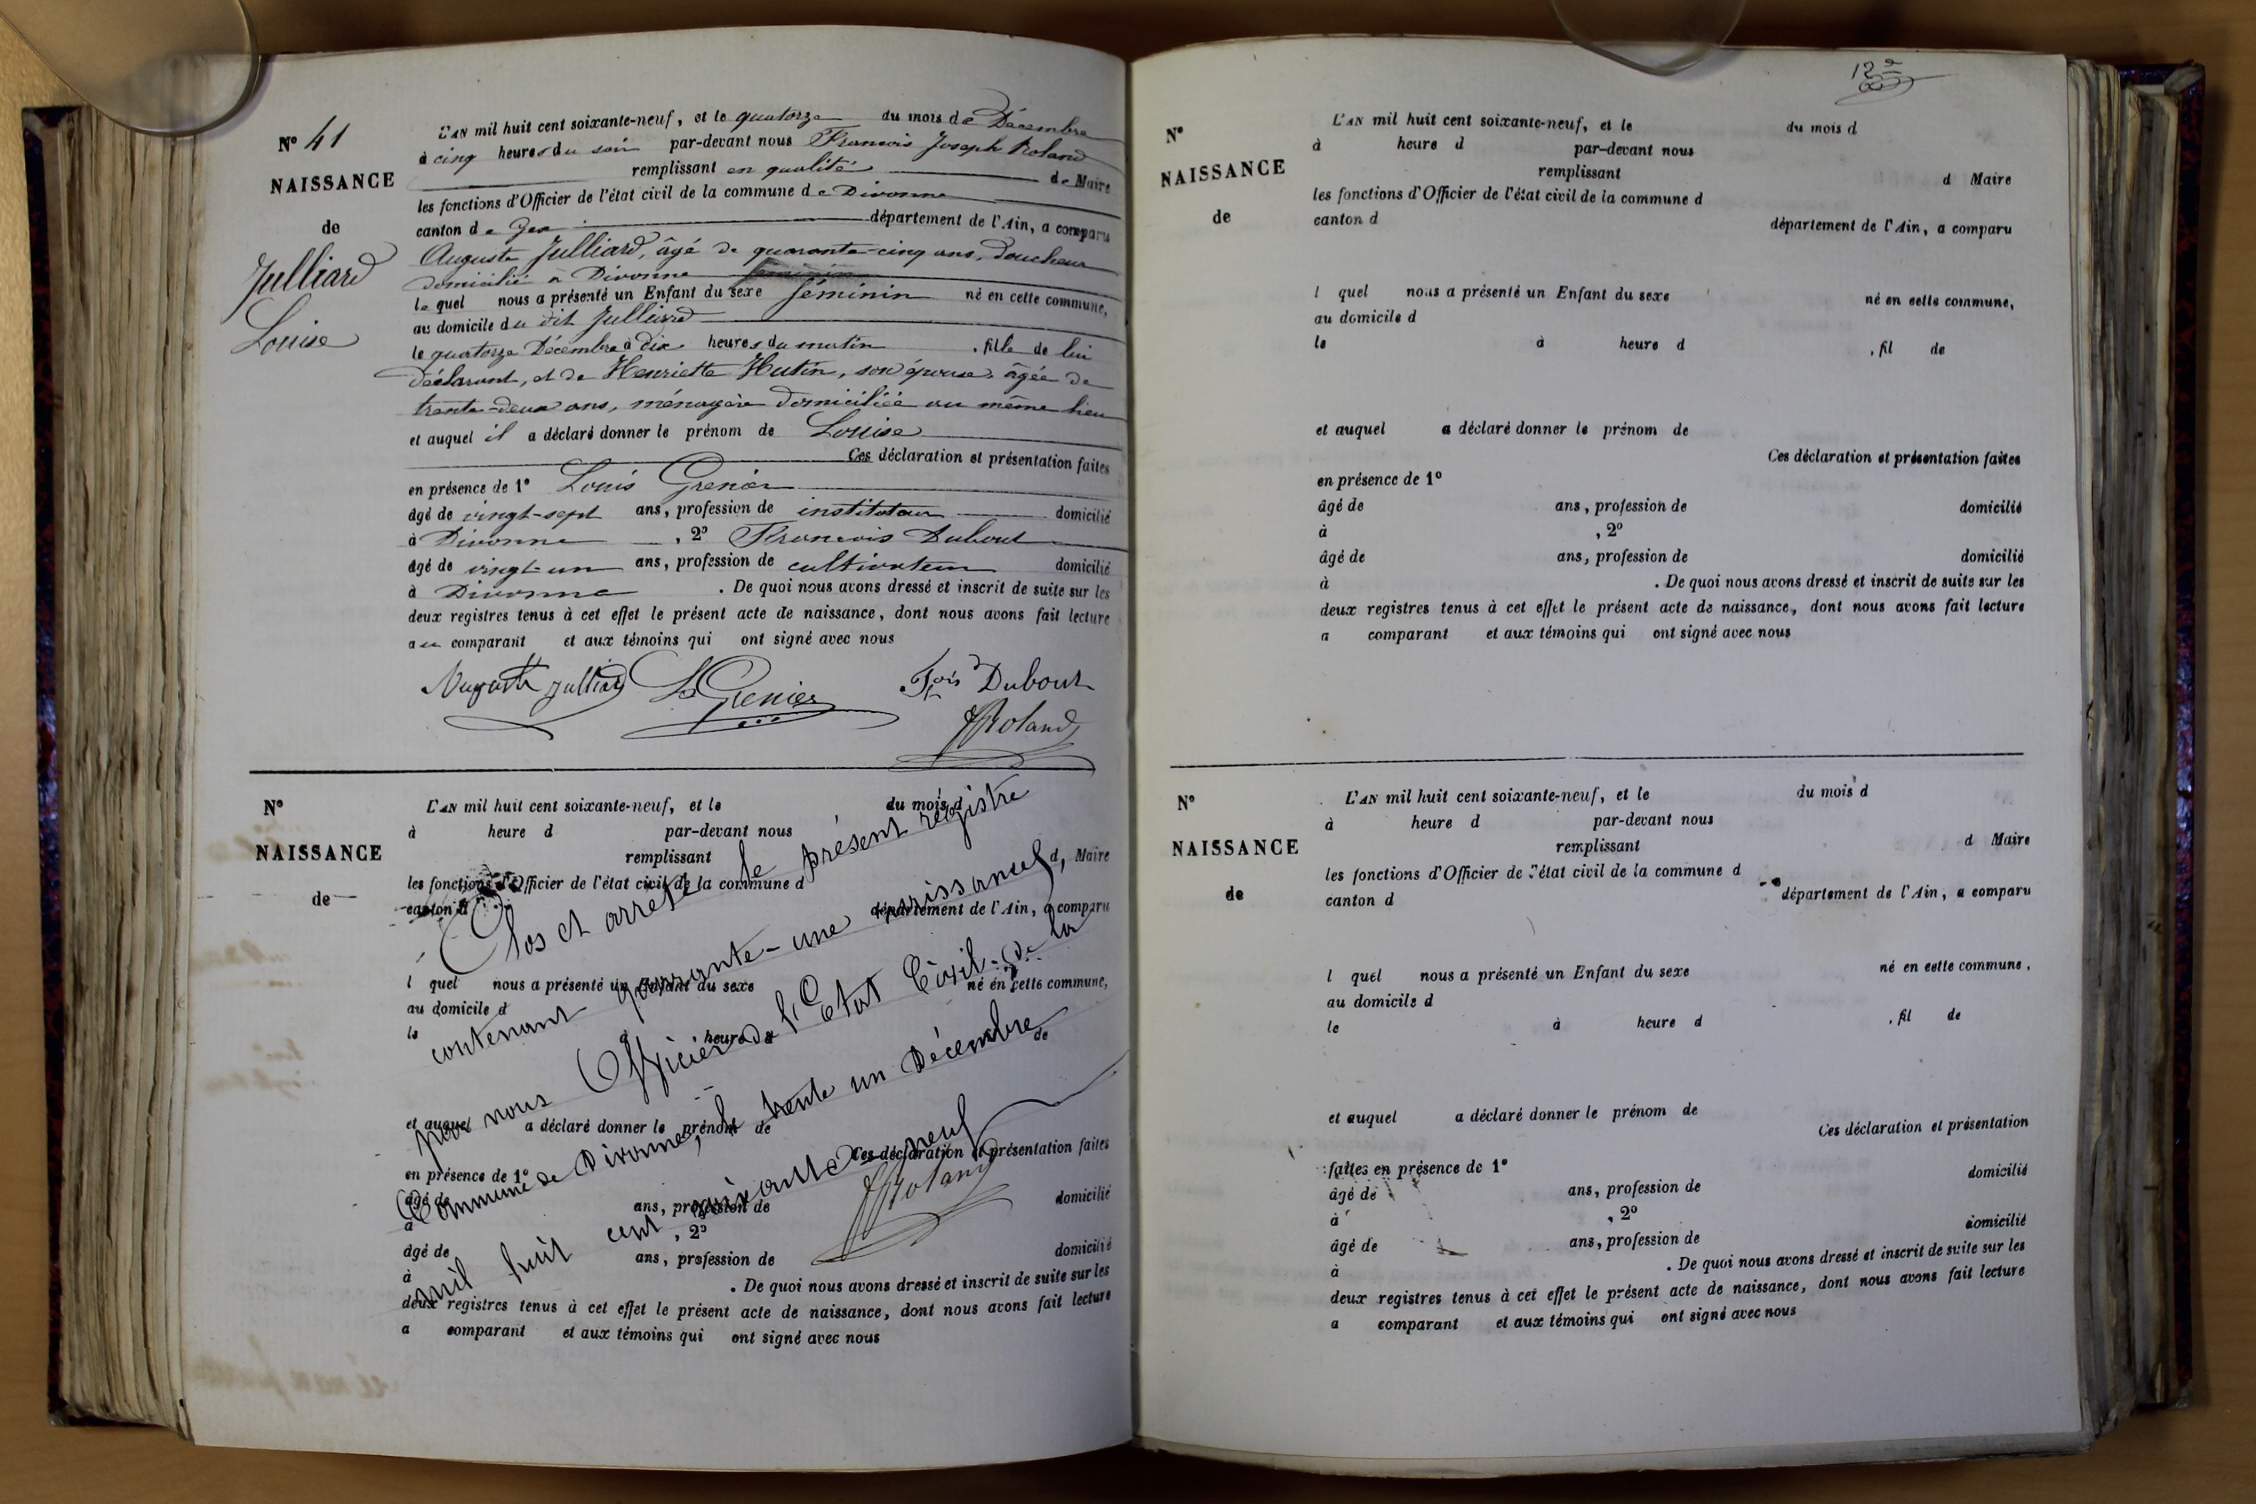 N° 41
NAISSANCE
de
Julliard
Louise
L'AN mil huit cent soixante-neuf, et le quatorze du mois de Décembre
à cinq heures du soir par-devant nous François Joseph Roland
remplissant en qualité de Maire
les fonctions d'Officier de l'état civil de la commune de Divonne
canton de Gex département de l'Ain, a comparu
Auguste Julliard, âgé de quarante-cinq ans, doucheur
domicilié à Divonne
lequel nous a présenté un Enfant du sexe féminin né en cette commune,
au domicile du dit Julliard
le quatorze Décembre à dix heures du matin, fille de lui
déclarant, et de Henriette Hutin, son épouse, âgée de
trente-deux ans, ménagère domiciliée au même lieu
et auquel il a déclaré donner le prénom de Louise
Ces déclaration et présentation faites
en présence de 1° Louis Grenier
âgé de vingt-sept ans, profession de instituteur domicilié
à Divonne, 2° François Dubout
âgé de vingt-un ans, profession de cultivateur domicilié
à Divonne. De quoi nous avons dressé et inscrit de suite sur les
deux registres tenus à cet effet le présent acte de naissance, dont nous avons fait lecture
au comparant et aux témoins qui ont signé avec nous
Auguste Julliard L Grenier Fois Dubout
JRoland
N°
NAISSANCE
de
L'AN mil huit cent soixante-neuf, et le du mois d
à heure d par-devant nous
remplissant d Maire
les fonctions d'Officier de l'état civil de la commune d
canton d département de l'Ain, a comparu
l quel nous a présenté un Enfant du sexe né en cette commune,
au domicile d
le à heure d de
et auquel a déclaré donner le prénom de
Ces déclaration et présentation faites
en présence de 1°
âgé de ans, profession de domicilié
à , 2°
âgé de ans, profession de domicilié
à . De quoi nous avons dressé et inscrit de suite sur les
deux registres tenus à cet effet le présent acte de naissance, dont nous avons fait lecture
a comparant et aux témoins qui ont signé avec nous
Clos et arrêté le présent registre
contenant quarante-une naissances,
par nous Officier de l'Etat Civil de la
Commune de Divonne, le trente un Décembre
mil huit cent soixante-neuf
JRoland
N°
NAISSANCE
de
L'AN mil huit cent soixante-neuf, et le du mois d
à heure d par-devant nous
remplissant d Maire
les fonctions d'Officier de l'état civil de la commune d
canton d département de l'Ain, a comparu
l quel nous a présenté un Enfant du sexe né en cette commune,
au domicile d
le à heure d , fil de
et auquel a déclaré donner le prénom de
Ces déclaration et présentation faites
en présence de 1°
âgé de ans, profession de domicilié
à , 2°
âgé de ans, profession de domicilié
à . De quoi nous avons dressé et inscrit de suite sur les
deux registres tenus à cet effet le présent acte de naissance, dont nous avons fait lecture
a comparant et aux témoins qui ont signé avec nous
N°
NAISSANCE
de
L'AN mil huit cent soixante-neuf, et le du mois d
à heure d par-devant nous
remplissant d Maire
les fonctions d'Officier de l'état civil de la commune d
canton d département de l'Ain, a comparu
l quel nous a présenté un Enfant du sexe né en cette commune,
au domicile d
le à heure d , fil de
et auquel a déclaré donner le prénom de
Ces déclaration et présentation
faites en présence de 1° domicilié
âgé de ans, profession de
à , 2° domicilié
âgé de ans, profession de
à . De quoi nous avons dressé et inscrit de suite sur les
deux registres tenus à cet effet le présent acte de naissance, dont nous avons fait lecture
a comparant et aux témoins qui ont signé avec nous